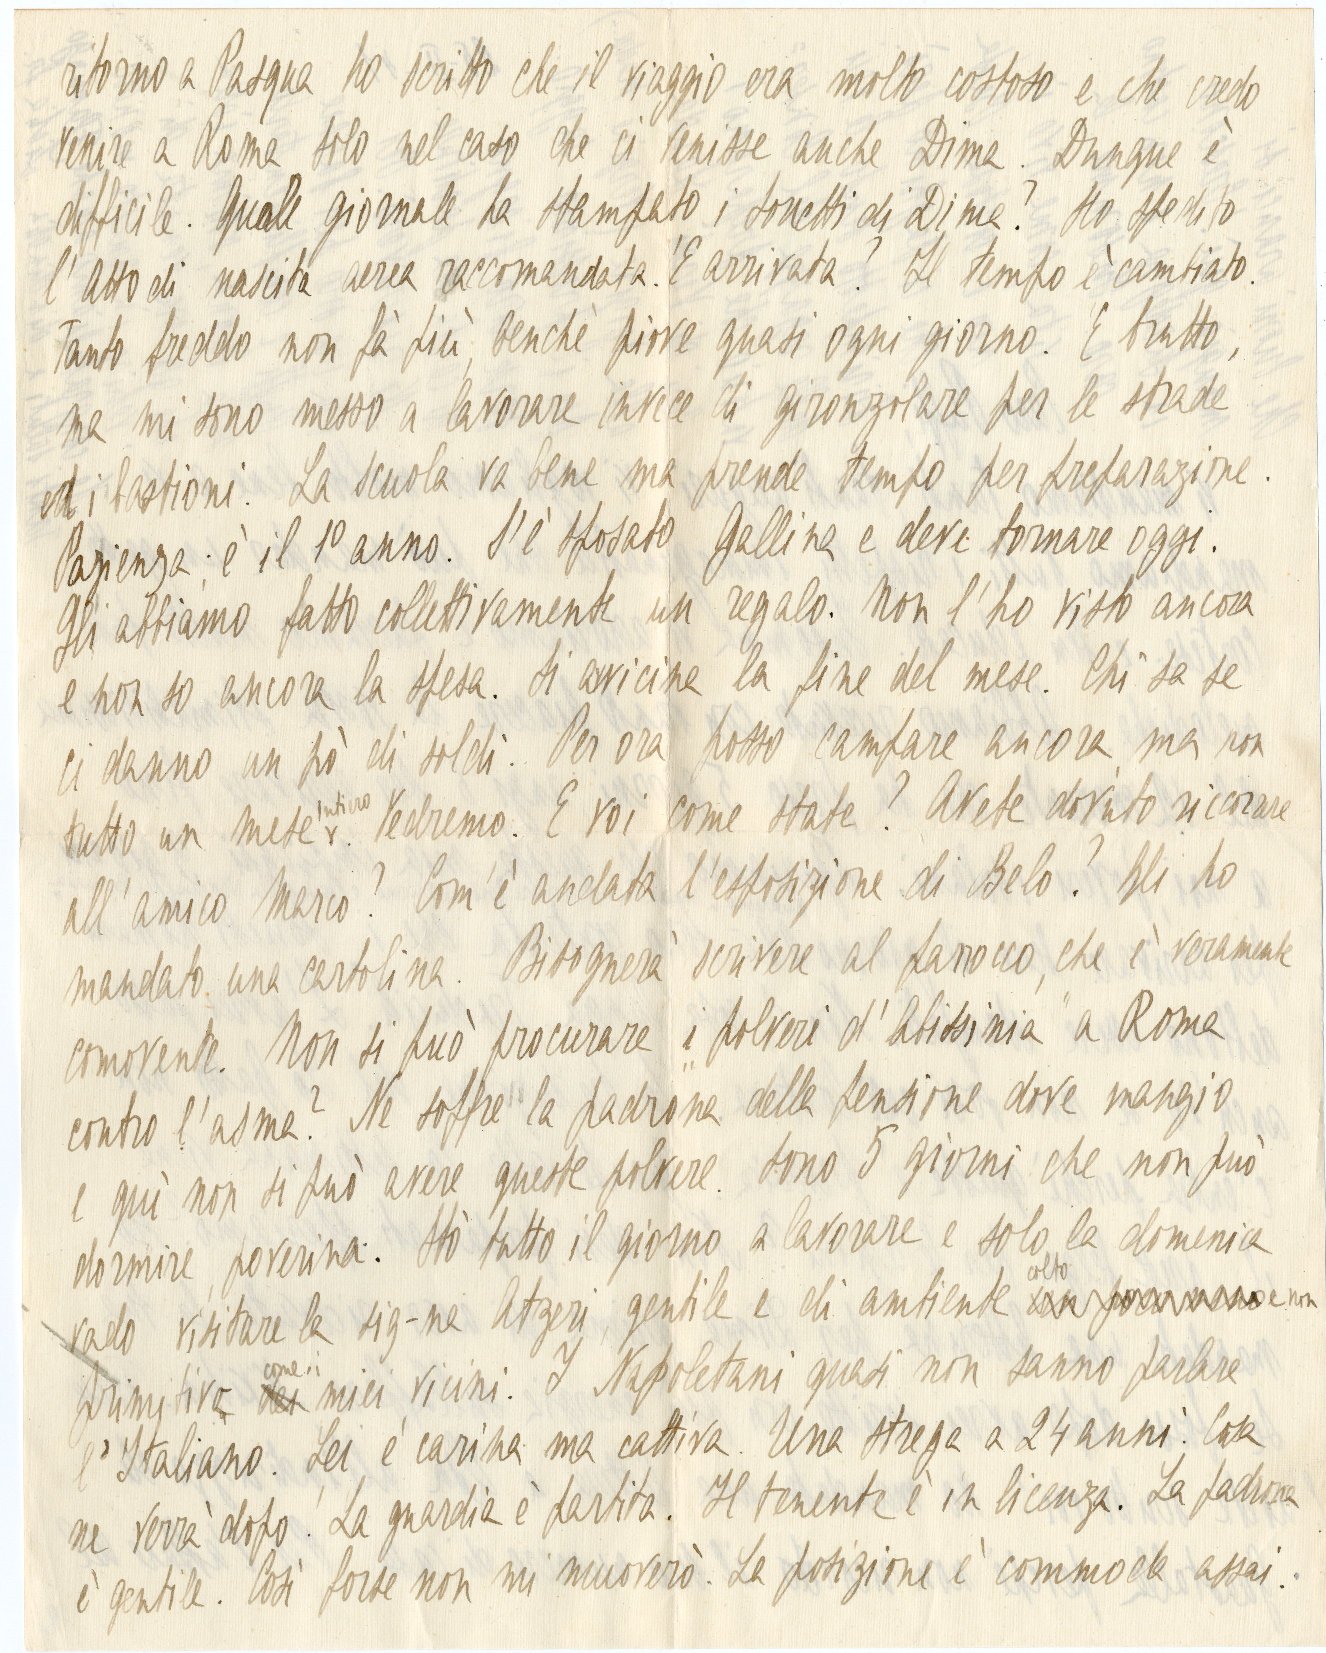 ritorno a Pasqua ho scritto che il viaggio era molto costoso e che credo
venire a Roma solo nel caso che ci venisse anche Dima. Dunque è
difficile. Quale giornale ha stampato i sonetti di Dima? Ho spedito
l'Atto di nascita aerea raccomandata. E' arrivata? Il tempo è cambiato.
Tanto freddo non fà più, benchè piove quasi ogni giorno. E brutto,
ma mi sono messo a lavorare invece di gironzolare per le strade
ed i bastioni. La scuola va bene ma prende tempo per preparazione.
Pazienza; è il 1º anno. S'è sposato Gallina e deve tornare oggi.
Gli abbiamo fatto collettivamente un regalo. Non l'ho visto ancora
e non so ancora la spesa. Si avicina la fine del mese. Chi sa se
ci danno un pò di soldi. Per ora posso campare ancora ma non
tutto un mese intiero. Vedremo. E voi come state? Avete dovuto riccorare
all'amico Marco? Com'è andata l'esposizione di Belo? Gli ho
mandato una cartolina. Bisognerà scrivere al parroco, che è veramente
comovente. Non si può procurare „i polveri d'Abissinia" a Roma
contro l'asma? Ne soffre la padrona della pensione dove mangio
e quì non si può avere queste polvere. Sono 5 giorni che non può
dormire, poverina. Stò tutto il giorno a lavorare e solo la domenica
vado visitare la sig-na Atzeri, gentile e di ambiente colto e non
primitivo come i miei vicini. I Napoletani quasi non sanno parlare
l'Italiano. Lei è carina ma cattiva. Una strega a 24 anni. Cosa
ne verrà dopo! La guardia è partita. Il tenente è in licenza. La padrona
è gentile. Così forse non mi muoverò. La posizione è commoda assai.